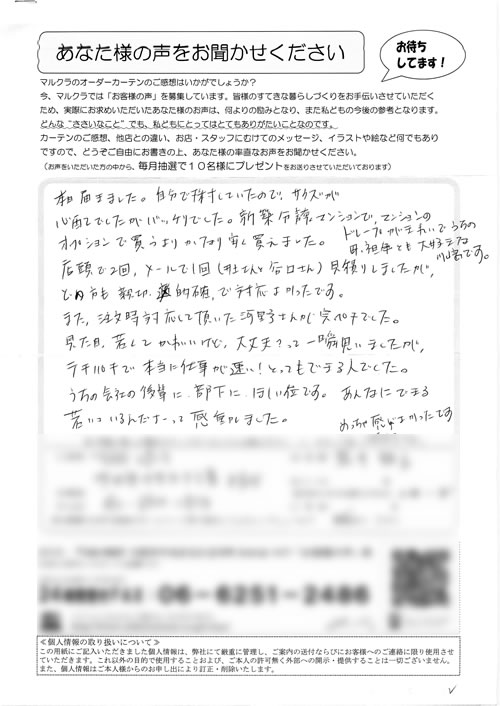 あなた様の声をお聞かせください
お待ち
してます!
マルクラのオーダーカーテンのご感想はいかがでしょうか?
今、マルクラでは「お客様の声」を募集しています。皆様のすてきな暮らしづくりをお手伝いさせていただく
ため、実際にお求めいただいたあなた様のお声は、何よりの励みとなり、また私どもの今後の参考となります。
どんな“ささいなこと”でも、私どもにとってはとてもありがたいことなのです。
カーテンのご感想、他店との違い、お店・スタッフにむけてのメッセージ、イラストや絵など何でもあり
ですので、どうぞご自由にお書きの上、あなた様の率直なお声をお聞かせください。
(お声をいただいた方の中から、毎月抽選で10名様にプレゼントをお送りさせていただいております)
本日届きました。自分で採寸していたので、サイズが
心配でしたがバッチリでした。新築分譲マンションで、マンションの
オプションで買うよりかなり安く買えました。
ドレープがきれいでうちの
店頭で2回、メールで1回(社さんと谷口さん)見積りしましたが、
どの方も親切、的確で対応よかったです。
また、注文時対応して頂いた河野さんが完ペキでした。
見た目、若くてかわいいけど、大丈夫?って一瞬思いましたが、
テキパキで本当に仕事が速い!とってもできる人でした。
うちの会社の後輩に、部下に、ほしい位です。あんなにできる
若いコいるんだなーって感動しました。
めっちゃ感じよかったです
06-6251-2486
≪個人情報の取り扱いについて≫
この用紙にご記入いただきました個人情報は、弊社にて厳重に管理し、ご案内の送付ならびにお客様へのご連絡に限り使用させ
ていただきます。これ以外の目的で使用すること、および、ご本人の許可無く外部への開示・提供することは一切ございません。
また、個人情報はご本人様からのお申し出により訂正・削除いたします。